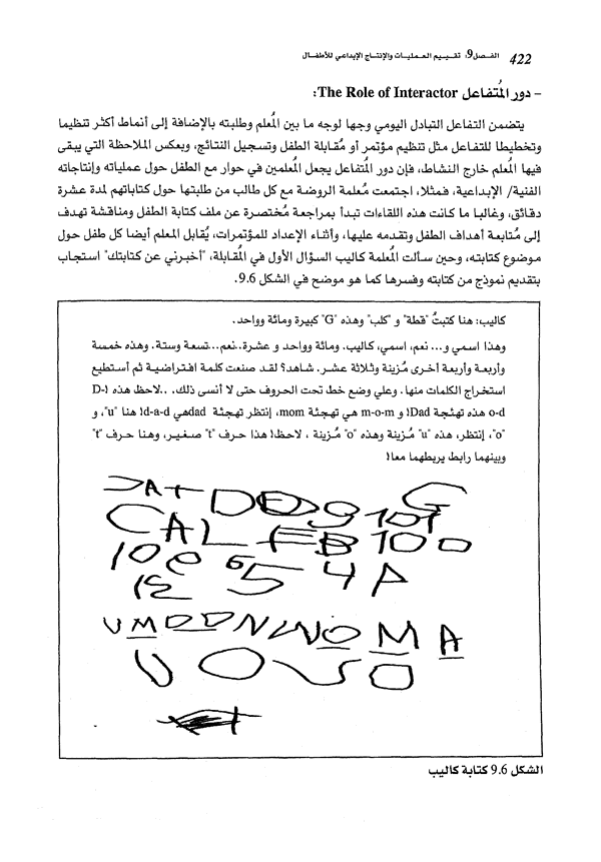 422 الفـصل9، تقـيـيم العـمليـات والإنتـاج الإبداعي للأطفـال
– دور المُتفـاعل The Role of Interactor:
يتضمن التفاعل التبادل اليومي وجها لوجه ما بين المُعلم وطلبته بالإضافة إلى أنماط أكثر تنظيما
وتخطيطا للتفاعل مثل تنظيم مؤتمر أو مُقابلة الطفل وتسجيل النتائج، وبعكس الملاحظة التي يبقى
فيها المُعلم خارج النشاط، فإن دور المُتفاعل يجعل المُعلمين في حوار مع الطفل حول عملياته وإنتاجاته
الفنية/ الإبداعية، فمثلا، اجتمعت مُعلمة الروضة مع كل طالب من طلبتها حول كتاباتهم لمدة عشرة
دقائق، وغالبا ما كانت هذه اللقاءات تبدأ بمراجعة مُختصرة عن ملف كتابة الطفل ومناقشة تهدف
إلى مُتابعة أهداف الطفل وتقدمه عليها، وأثناء الإعداد للمؤتمرات، يُقابل المعلم أيضا كل طفل حول
موضوع كتابته، وحين سألت المُعلمة كاليب السؤال الأول في المُقابلة، "أخبرني عن كتابتك" استجاب
بتقديم نموذج من كتابته وفسرها كما هو موضح في الشكل 9.6.
كاليب: هنا كتبتُ "قطة" و "كلب" وهذه "G" كبيرة ومائة وواحد.
وهذا اسمي و... نعم، اسمي، كاليب. ومائة وواحد و عشرة..نعم...تسعة وستة. وهذه خمسة
وأربعة وأربعة أخرى مُزينة وثلاثة عشر. شاهد؟ لقد صنعت كلمة افتراضية ثم أستطيع
استخراج الكلمات منها. وعلي وضع خط تحت الحروف حتى لا أنسى ذلك. ..لاحظ هذه !D-
o-d هذه تهئجة Dad! و m-o-m هي تهجئة mom، إنتظر تهجئة dadهي d-a-d! هنا "u"، و
"o"، إنتظر، هذه "u" مُزينة وهذه "o" مُزينة ، لاحظ! هذا حرف "t" صغير، وهنا حرف "t"
وبينهما رابط يربطهما معا!
CAT DOG 9 101 G
CALEB 100
10 e 6 5 4 A
12
U M O D N W O M A
U O U O
الشكل 9.6 كتابة كاليب